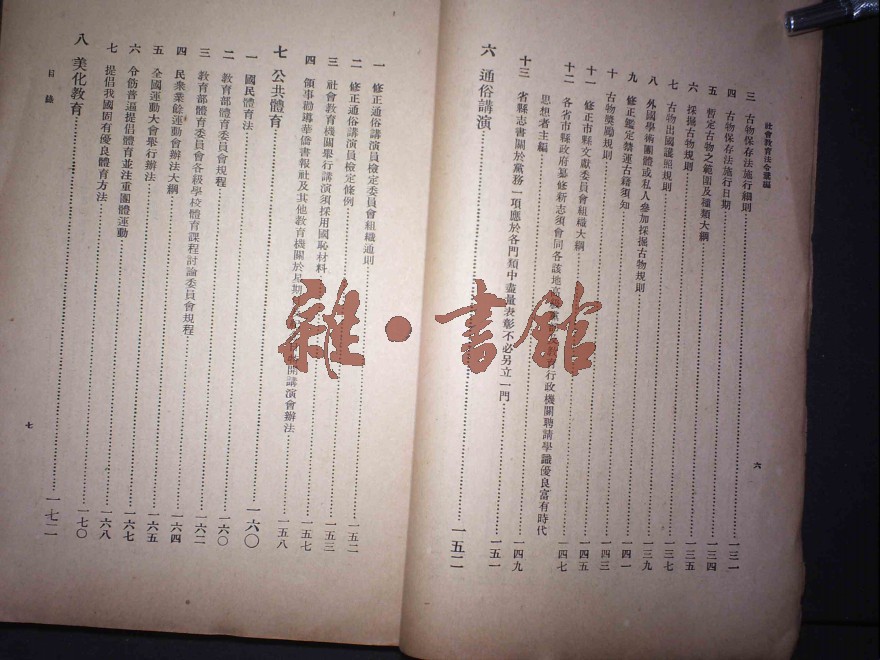 社會教育法令彙編
三 古物保存法施行細則 一三一
四 古物保存法施行日期 一三四
五 暫定古物之範圍及種類大綱 一三四
六 採掘古物規則 一三五
七 古物出國護照規則 一三七
八 外國學術團體或私人參加採掘古物規則 一三九
九 修正鑑定禁運古籍須知 一四一
十 古物獎勵規則 一四三
十一 修正市縣文獻委員會組織大綱 一四五
十二 各省市縣政府纂修新志須會同各該地高 教育行政機關聘請學識優良富有時代
思想者主編 一四七
十三 省縣志書關於黨務一項應於各門類中盡量表彰不必另立一門 一四九
一五一
六 通俗講演 一五二
六
一 修正通俗講演員檢定委員會組織通則
二 修正通俗講演員檢定條例 一五二
三 社會教育機關舉行講演須採用國恥材料 一五三
四 領事勸導華僑書報社及其他教育機關於星期 開講演會辦法 一五七
一五八
七 公共體育 一六〇
一 國民體育法
二 教育部體育委員會規程 一六〇
三 教育部體育委員會各級學校體育課程討論委員會規程 一六二
四 民衆業餘運動會辦法大綱 一六四
五 全國運動大會舉行辦法 一六五
六 令飭普遍提倡體育並注重團體運動 一六七
七 提倡我國固有優良體育方法 一六八
一七〇
八 美化教育 一七二
目錄
七
雜·書館